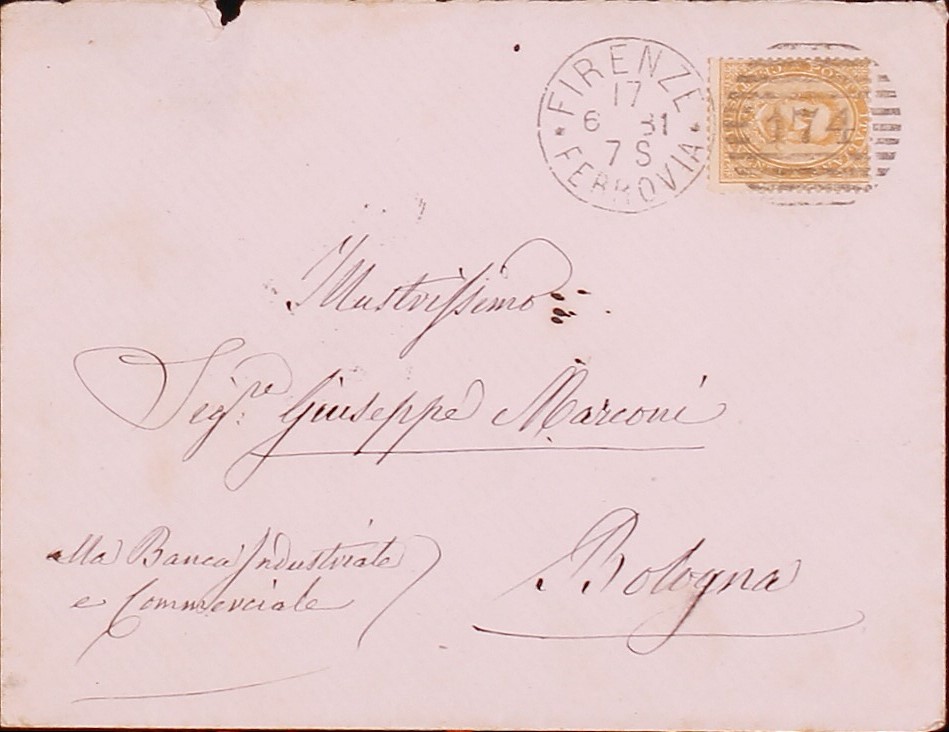 FIRENZE
17
6 81
7 S
FERROVIA
174
Illustrissimo
Sigre Giuseppe Marconi
alla Banca Industriale
e Commerciale
Bologna